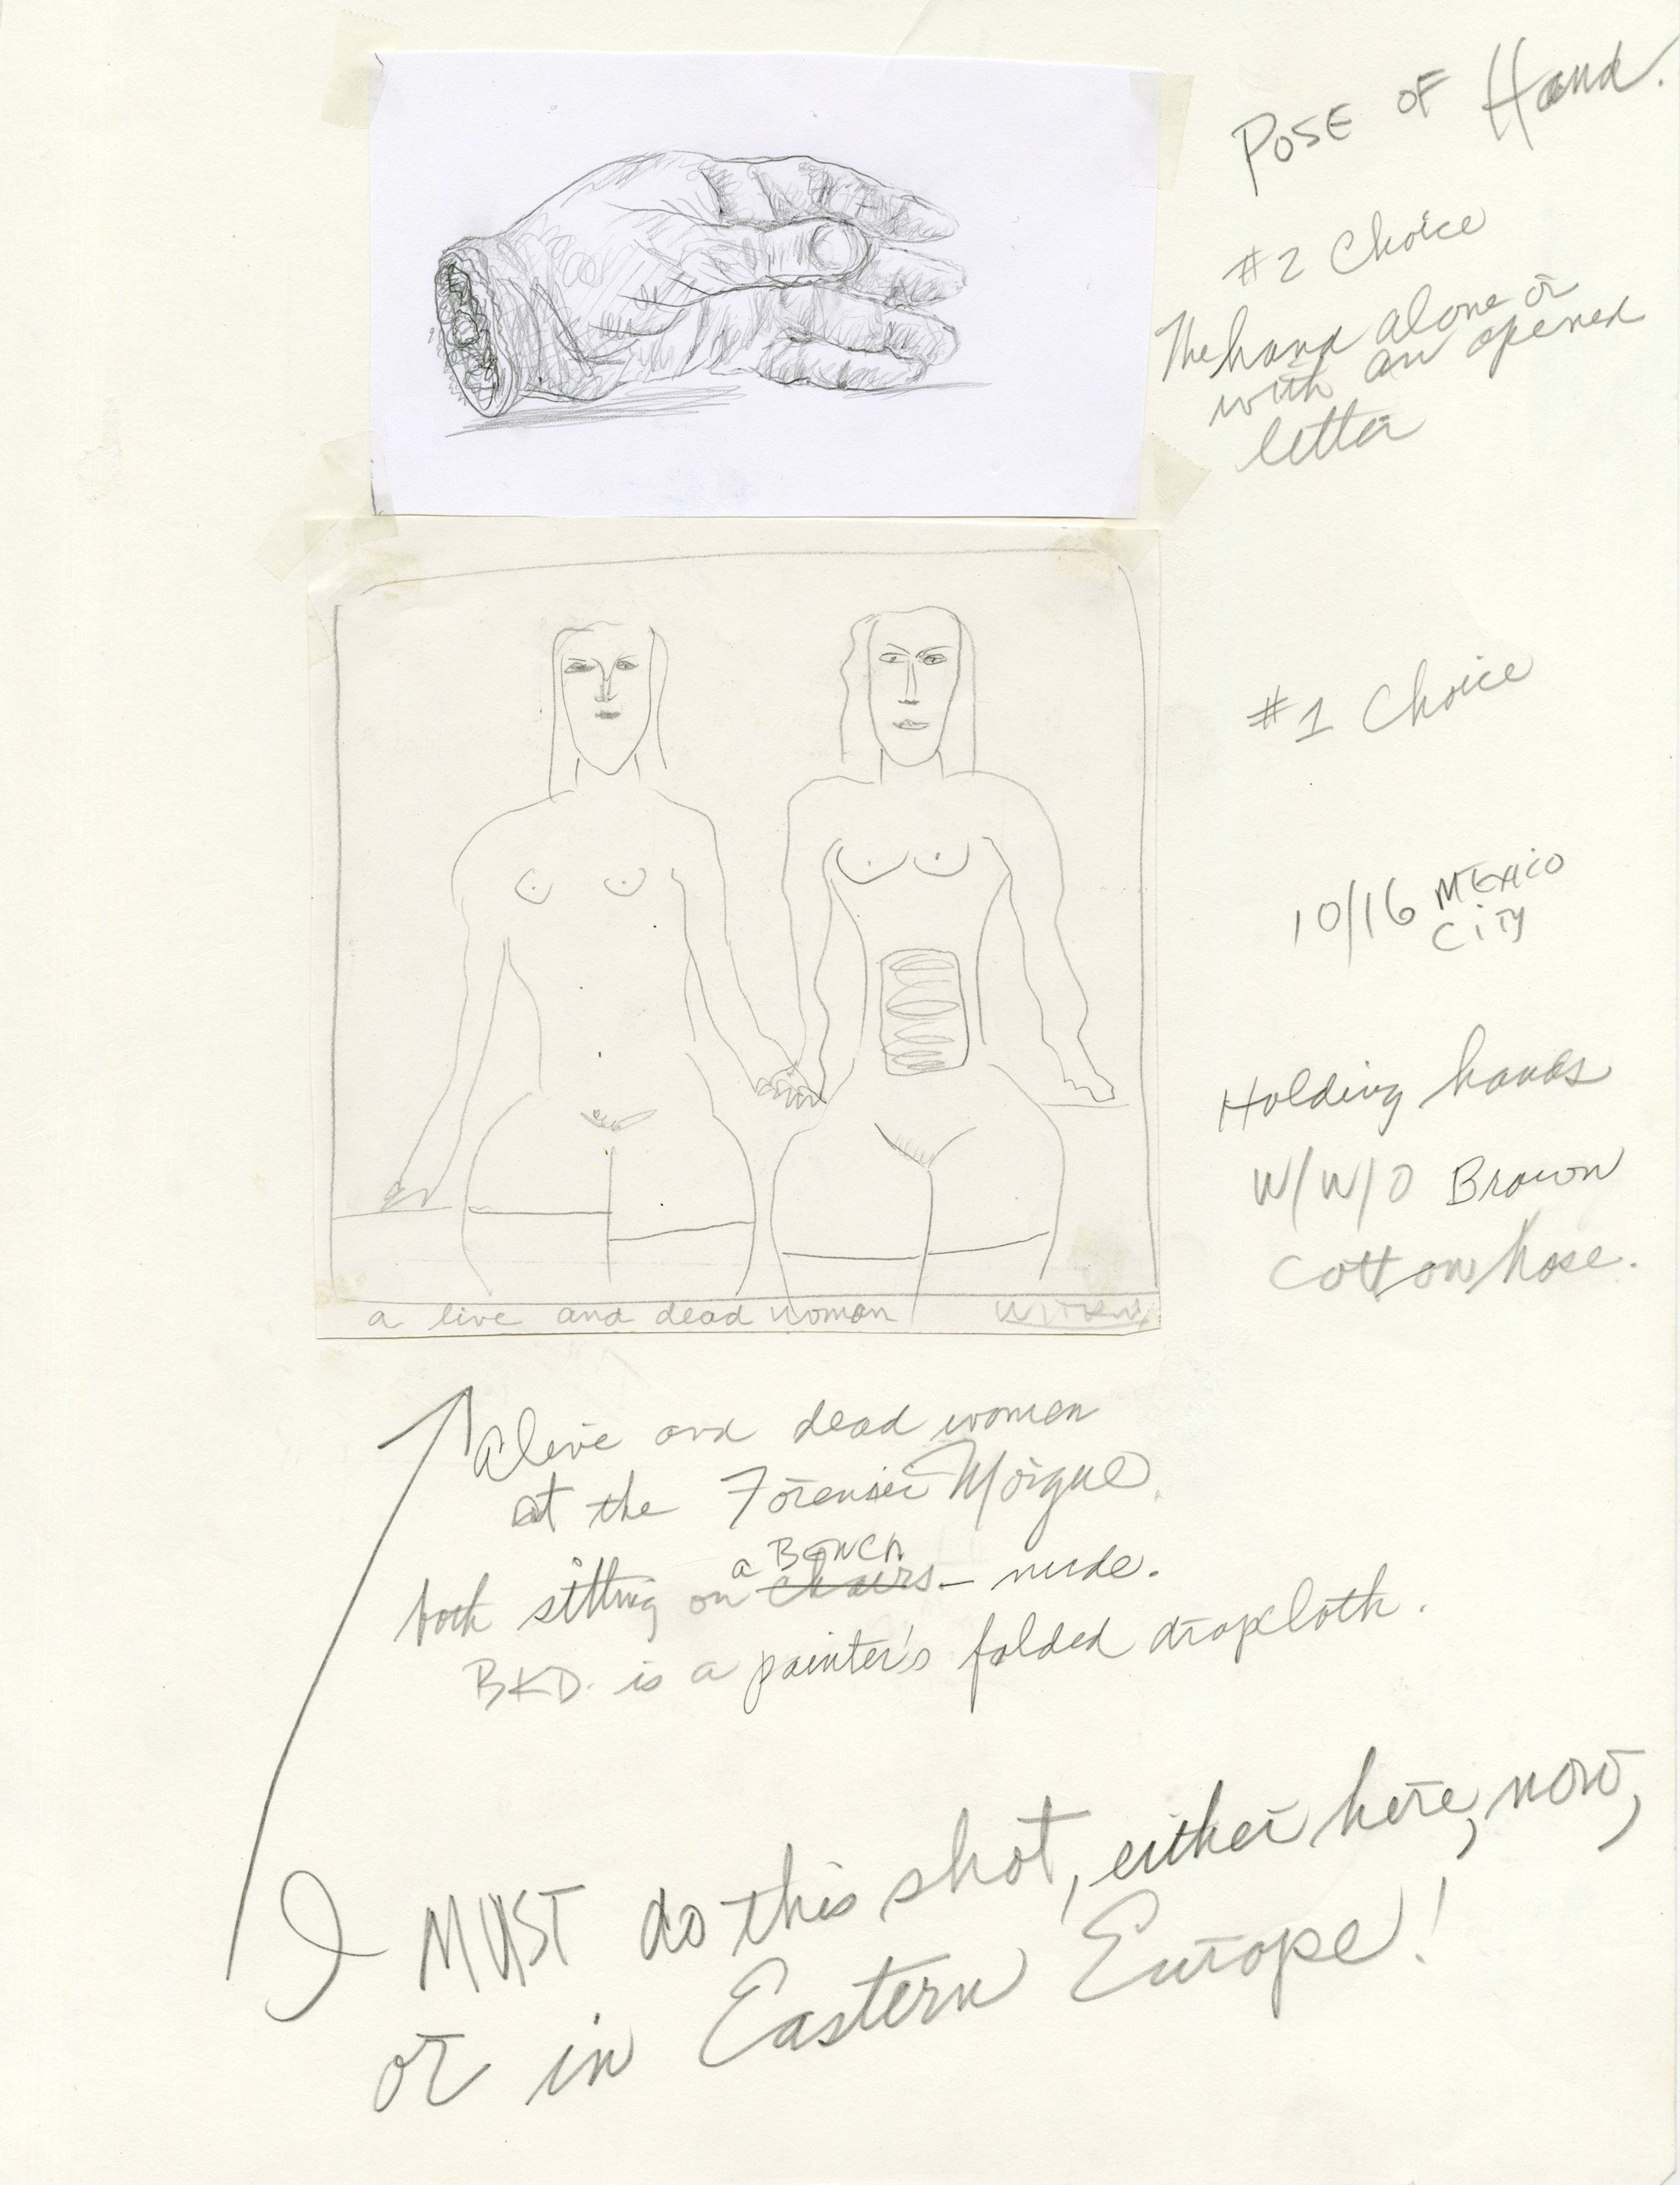 Pose of Hand.
#2 Choice
The hand alone or
with an opened
letter
#1 Choice
10/16 Mexico
City
Holding hands
W/W/O Brown
cotton hose.
a live and dead woman
Witkin
Alive and dead women
at the Forensic Morgue.
a Bench
both sitting on chairs – nude.
BKD. is a painter's folded dropcloth.
I MUST do this shot, either here, now,
or in Eastern Europe!